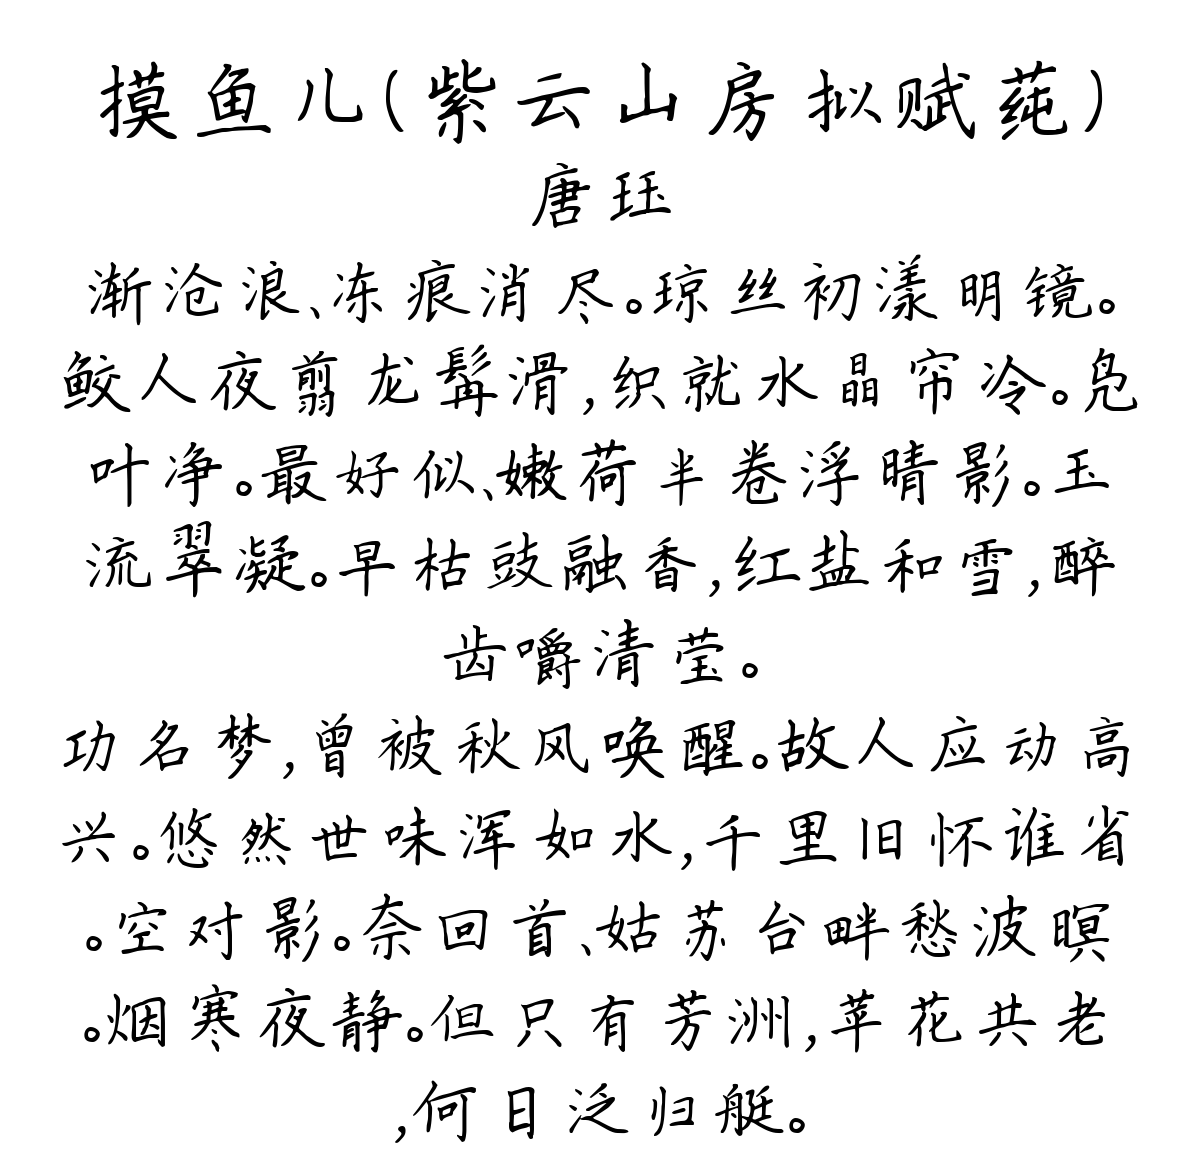 摸鱼儿(紫云山房拟赋莼)
唐珏
渐沧浪、冻痕消尽。琼丝初漾明镜。
鲛人夜翦龙髯滑,织就水晶帘冷。凫
叶净。最好似、嫩荷半卷浮晴影。玉
流翠凝。早枯豉融香,红盐和雪,醉
齿嚼清莹。
功名梦,曾被秋风唤醒。故人应动高
兴。悠然世味浑如水,千里旧怀谁省
。空对影。奈回首、姑苏台畔愁波暝
。烟寒夜静。但只有芳洲,苹花共老
,何日泛归艇。